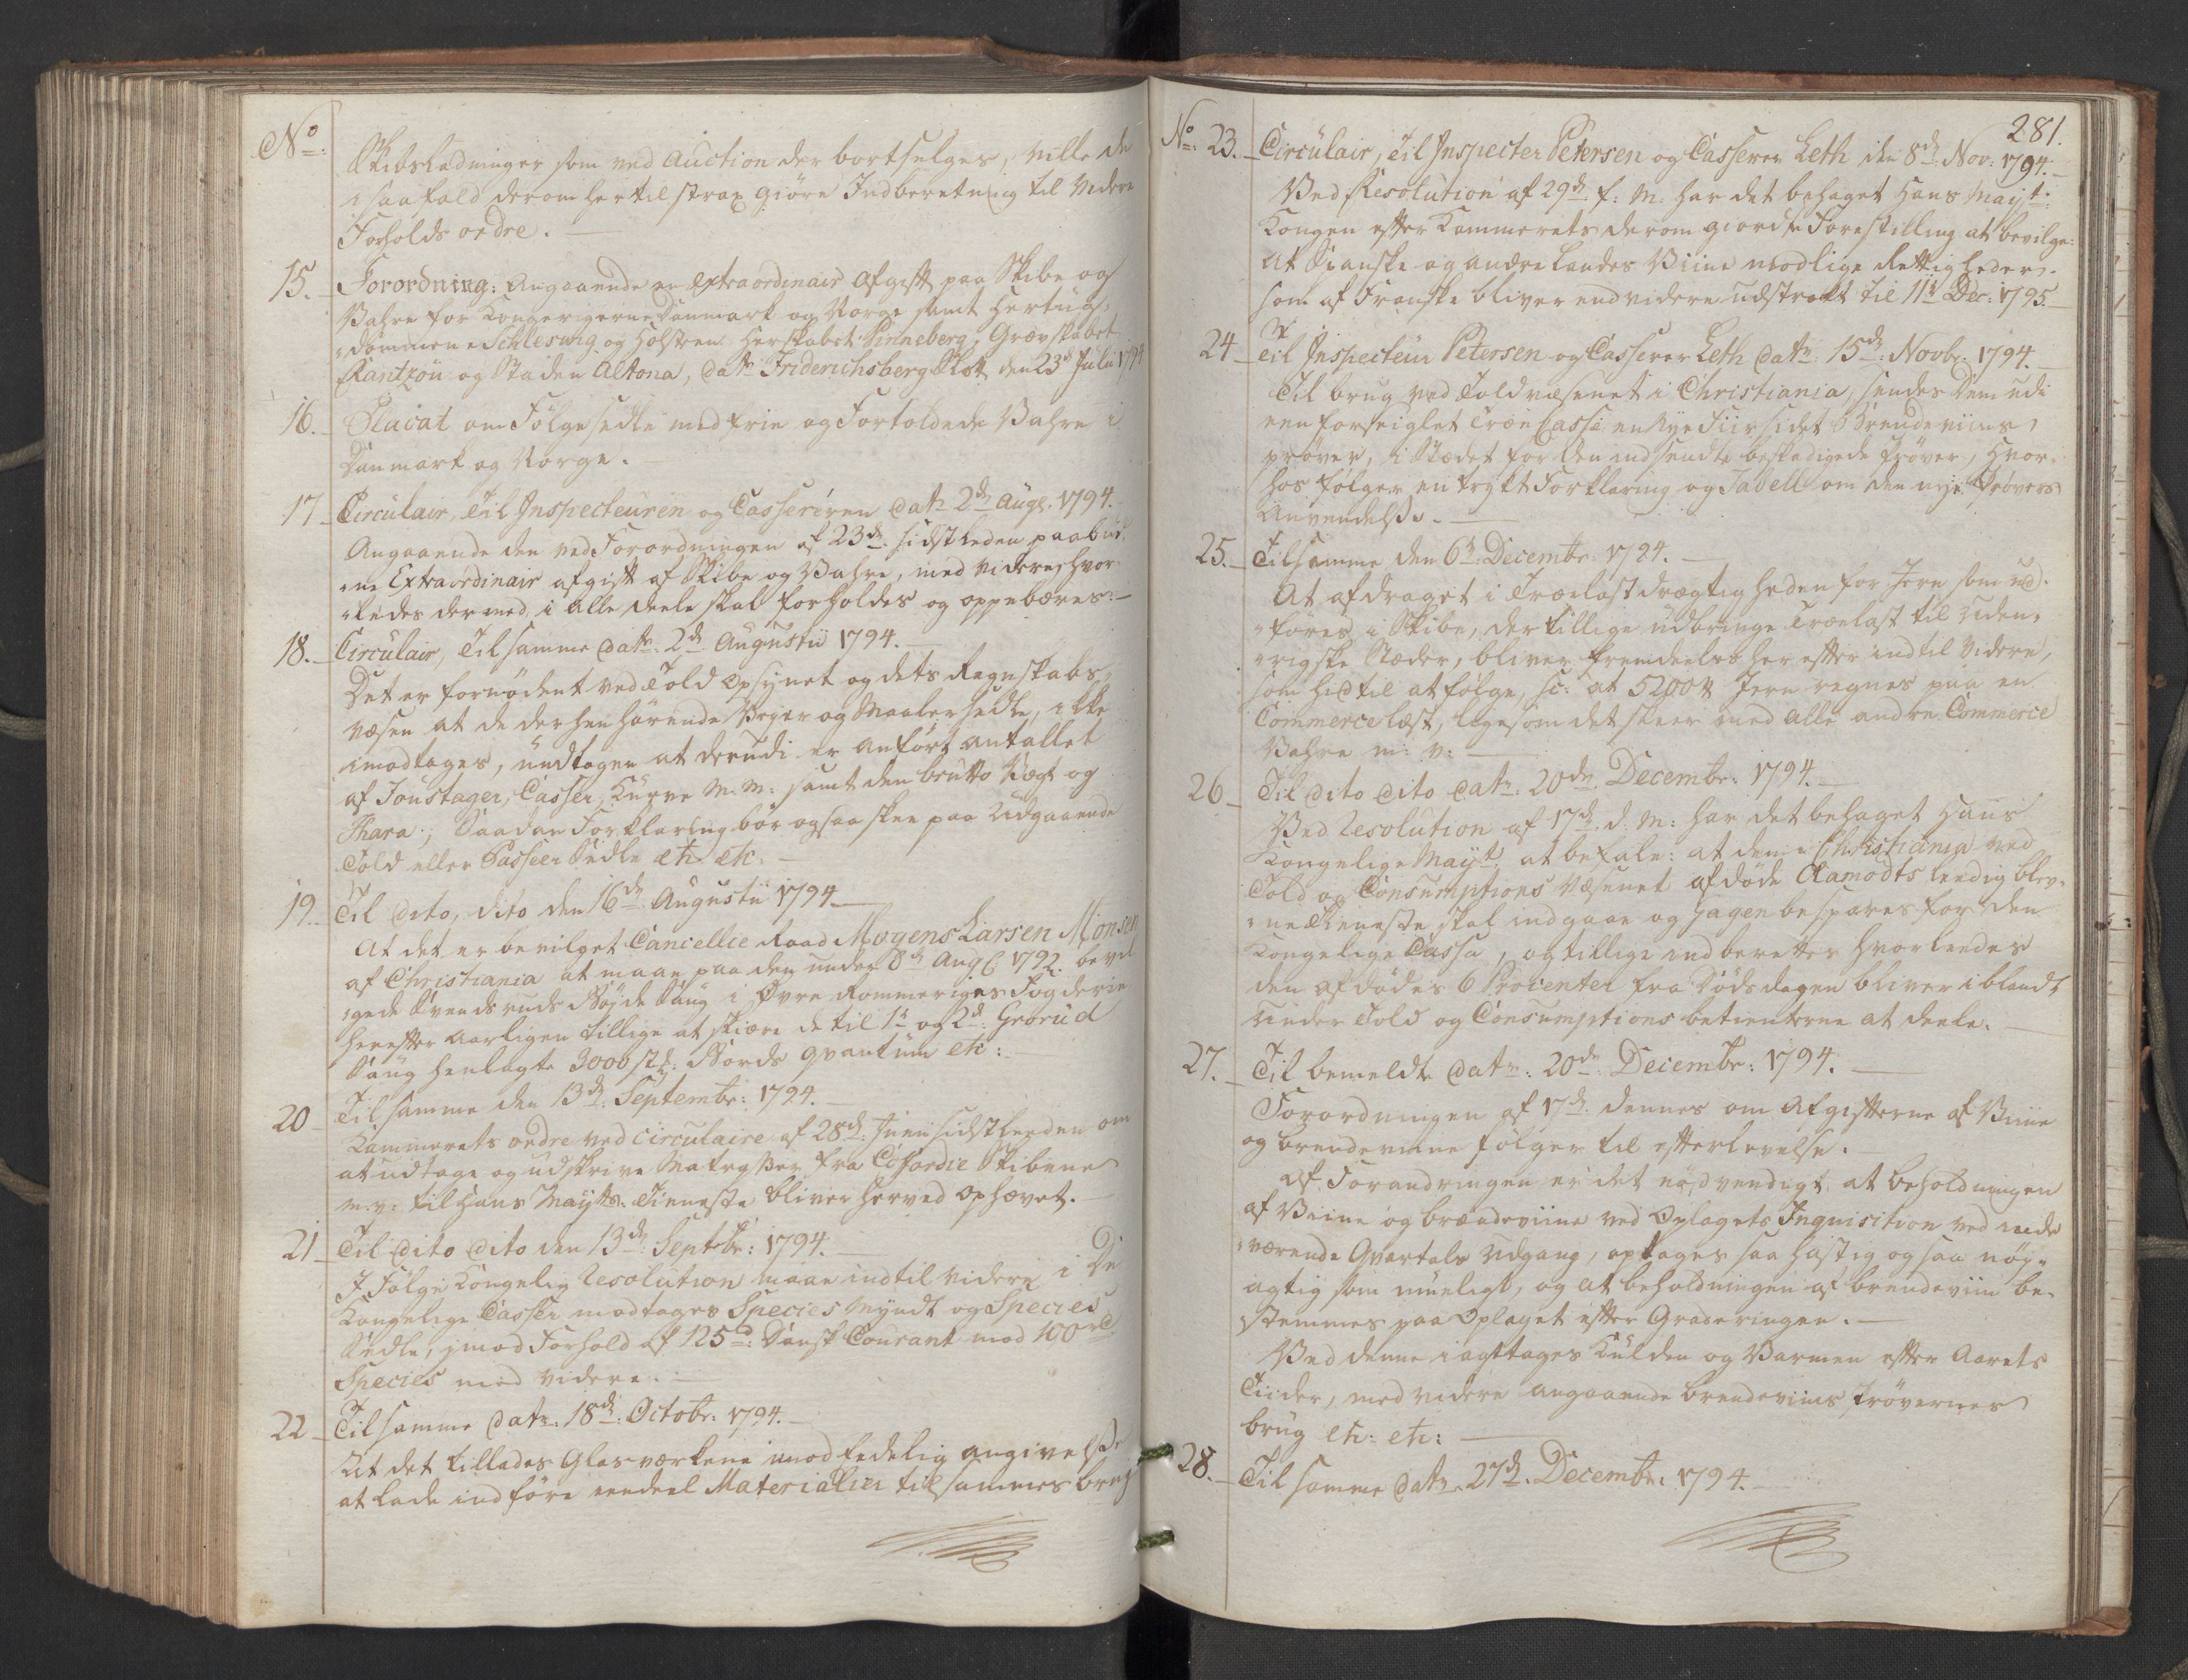 No
Skibsladninger som ved Auction der bortselges, ville de
i saafald derom hertil strax giøre Indberetning til videre
Forholds ordre.
15. Forordning: Angaaende en extraordinair Afgift paa Skibe og
Vahre for Kongerigerne Danmark og Norge samt Hertug-
dømmene Schleswig og Holsteen Herskabet Pinneberg, Grævskabet
Rantzou og Staden Altona, dat: Friderichsberg Slott den 23de Julii 1794
16. Placat om Følgesedle med frie og Fortoldede Vahre i
Danmark og Norge.
17 Circulair, Til Inspecteuren og Casserèren dat: 2de Augs. 1794.
Angaaende den ved Forordningen af 23de sidstleden paabud-
ne Extraordinair afgift af Skibe og Vahre, med videre hvor-
ledes dermed i alle deele skal forholdes og oppebæres.
18. Circulair, Til samme dat: 2de Augustii 1794.
Det er fornødent ved Told Opsynet og dets Regnskabs-
væsen at de derhen hørende Vejer og Maaler sedle, ikke
imodtages, undtagen at derudi er anført antallet
af Foustager, Casser, Kurve m: m: samt den brutto Vægt og
Thara; Saadan Forklaring bør ogsaa skee paa Udgaaende
Told eller Passeer Sedle etc. etc.
19. Til dito, dito den 16de Augustii 1794
At det er bevilget Cancellie Raad Mogens Larsen Monsen
af Christiania at maae paa den under 8de Aug. 1792. bevil
gede Svendsruds Bøyde Saug i Øvre Rommeriges Fogderie
herefter aarligen tillige at skiære de til 1te og 2de Grorud
Saug henlagte 3000 stk: Bords qvantum etc:
20 Til samme den 13de Septembr: 1794.
Kammerets ordre ved circulaire af 28de Junii sidstleeden om
at udtage og udskrive Matrosser fra Coffardie Skibene
m: v: til Hans Mayts: Tieneste bliver herved ophævet.
21 Til dito dito den 13de Septbr: 1794.
I Følge Kongelig Resolution maae indtil videre i De
Kongelige Casser modtages Species Myndt og Species
Sedle, imod Forhold af 125rd: Dansk Courant mod 100rd
Species med videre.
22 Til samme dat: 18de Octobr: 1794.
At det tillades Glasværkene imod Eedelig angivelse
at lade indføre eendeel Materialier til sammes brug
281.
No 23. Circulair, Til Inspecter Petersen og Casserer Leth den 8de Nov: 1794.
Ved Resolution af 29de f: M: har det behaget Hans Mayt:
Kongen efter Kammerets derom giorde Forestilling at bevilge:
at Spanske og andre Landes Viine modlige Rettigheder
som af Franske bliver end videre udstrakt til 11te Dec: 1795.
24 Til Inspecteur Petersen og Casserer Leth dat: 15de Novbr: 1794.
Til brug ved Toldvæsenet i Christiania, sendes Dem udi
een forseiglet Træe Casse en Nye Fiirsidet Brendeviins
prøver, i Stædet for den indsendte beskadigede Prøver, Hvor-
hos følger en trykt Forklaring og Tabell om den nye Prøvers
Anvendelse.
25. Til samme den 6te Decembr: 1794.
At afdraget i Trælast drægtigheden for Jern som ud-
føres i Skibe, der tillige udbringe Trælast til uden-
rigske Stæder, bliver fremdeeles her efter indtil videre,
som hidtil at følge, sc: at 5200 ℔ Jern regnes paa en
Commerce læst, ligesom det skeer med alle andre Commerce
Vahre m: v:
26 Til dito dito dat: 20de Decembr: 1794.
Ved Resolution af 17de d: M: har det behaget Hans
Kongelige Mayt: at befale: at den i Christiania ved
Told og Consumptions Væsenet afdøde Aamodts leedig blev-
ne Tieneste skal indgaae og Gagen bespares for den
Kongelige Cassa, og tillige indberettes hvorleedes
den afdødes 6 Procenter fra Dødsdagen bliver i blandt
Under Told og Consumptions betienterne at deele.
27. Til bemeldte dat: 20de Decembr: 1794.
Forordningen af 17de dennes om Afgifterne af Viine
og brendeviine følger til efterlevelse.
Af Forandringen er det nødvendigt at beholdningen
af Viine og brændeviine ved Oplagets Inquisition ved inde
værende Qvartals Udgang, optages saa hastig og saa nøy-
agtig som mueligt, og at beholdningen af brendeviin be-
stemmes paa Oplaget efter Graderingen.
Ved denne iagttages Kulden og Varmen efter Aarets
Tiider, med videre angaaende brendeviins Prøvernes
brug etc: etc:
28. Til samme dat: 27de Decembr: 1794.